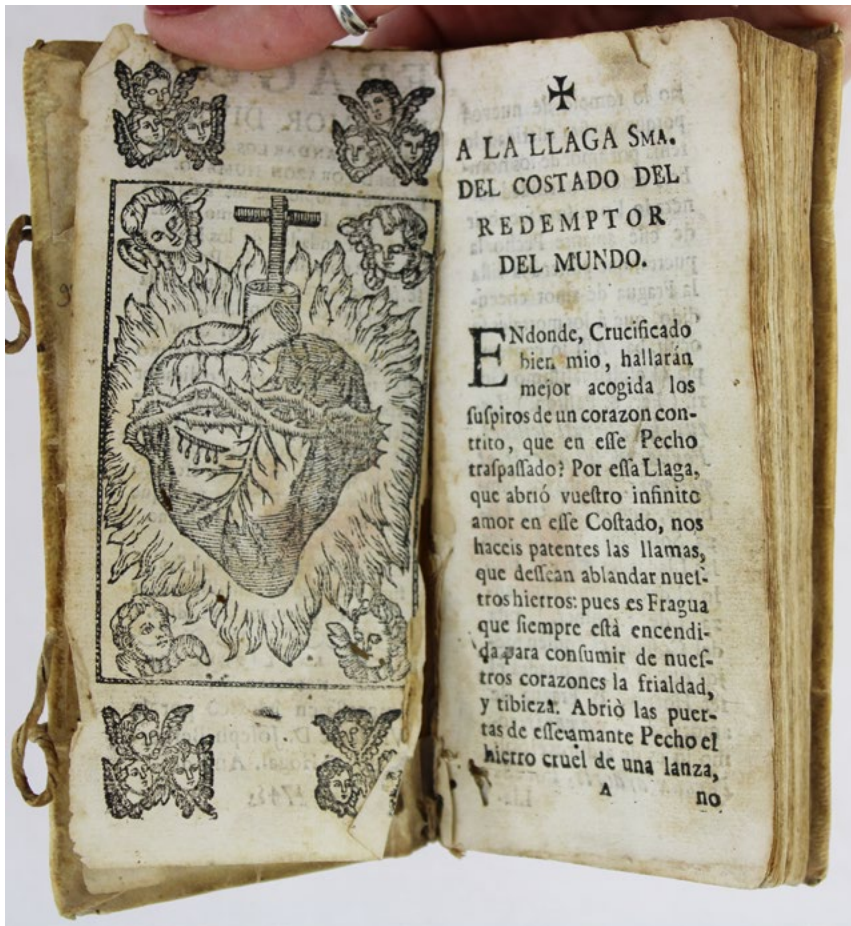 A LA LLAGA SMA.
DEL COSTADO DEL
REDEMPTOR
DEL MUNDO.
ENdonde, Crucificado
bien mio, hallarán
mejor acogida los
ſuſpiros de un corazon con-
trito, que en eſſe Pecho
traſpaſſado? Por eſſa Llaga,
que abrió vueſtro infinito
amor en eſſe Coſtado, nos
haceis patentes las llamas,
que deſſean ablandar nueſ-
tros hierros: pues es Fragua
que ſiempre eſtà encendi-
da para conſumir de nueſ-
tros corazones la frialdad,
y tibieza. Abriò las puer-
tas de eſſe amante Pecho el
hierro cruel de una lanza,
A no